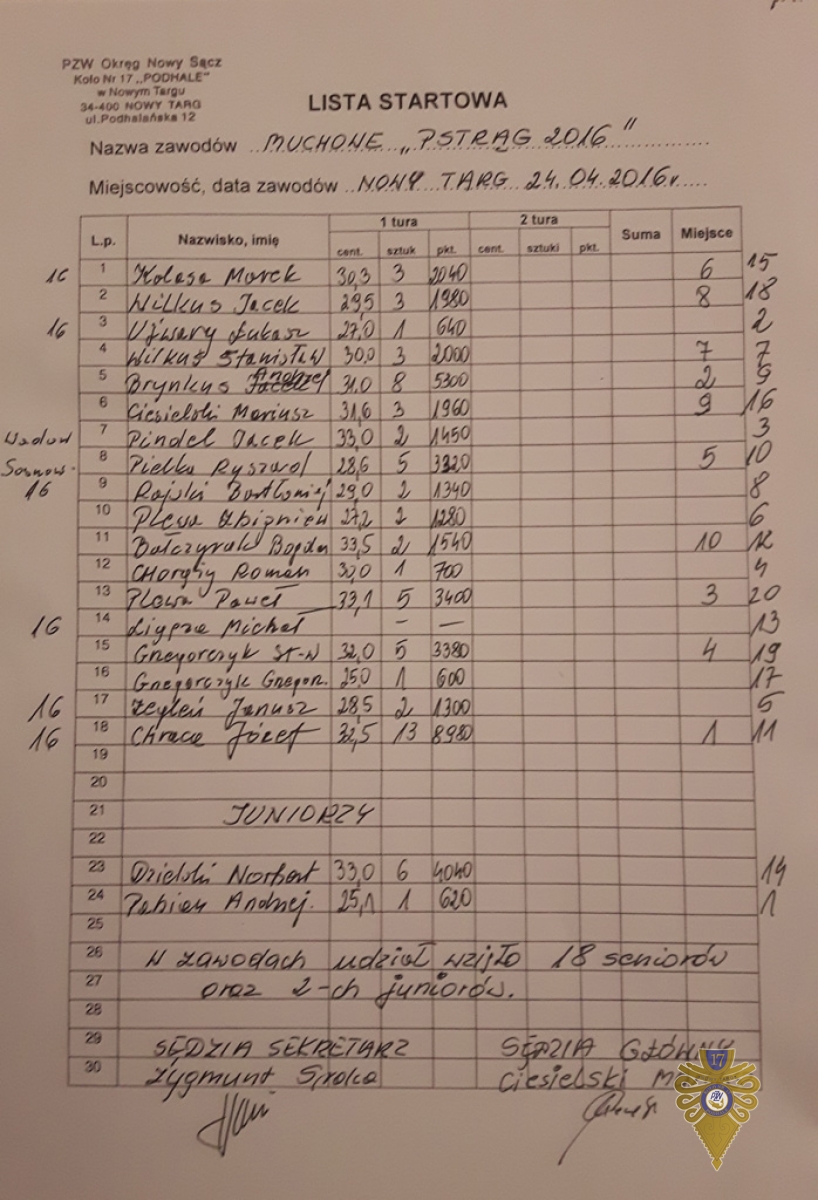 PZW Okręg Nowy Sącz
Koło Nr 17 „PODHALE"
w Nowym Targu
34-400 NOWY TARG
ul.Podhalańska 12
LISTA STARTOWA
Nazwa zawodów MUCHOWE „PSTRĄG 2016"
Miejscowość, data zawodów NOWY TARG 24.04.2016r
L.p. Nazwisko, imię 1 tura 2 tura Suma Miejsce
cent. sztuk pkt. cent. sztuki pkt.
16 1 Kolasa Marek 30,3 3 2040 6 15
2 Wilkus Jacek 29,5 3 1980 8 18
16 3 Ujwary Łukasz 27,0 1 640 2
4 Wilkus Stanisław 30,0 3 2000 7 7
5 Brynkus Andrzej 31,0 8 5300 2 9
6 Ciesielski Mariusz 31,6 3 1960 9 16
7 Pindel Jacek 33,0 2 1450 3
8 Pielka Ryszard 28,6 5 3320 5 10
16 9 Rajski Bartłomiej 29,0 2 1340 8
10 Plewa Zbigniew 27,2 2 1280 6
11 Bogdan 33,5 2 1540 10 12
12 Chorąży Roman 1 700 4
13 Plewa Paweł 33,1 5 3400 3 20
16 14 Michał – — 13
15 Gregorczyk ST-W 32,0 5 3380 4 19
16 Gregorczyk Gregor. 25,0 1 600 17
16 17 Zeyleń Janusz 28,5 2 1300
16 18 Chraca Józef 32,5 13 8980 1 11
19
20
21 JUNIORZY
22
23 Dzielski Norbert 33,0 6 4040 14
24 Pabian Andrzej. 25,1 1 620 1
25
26 W zawodach udział wzięło 18 seniorów
27 oraz 2-ch juniorów.
28
29 SĘDZIA SEKRETARZ SĘDZIA GŁÓWNY
30 Zygmunt Ciesielski
17
PZW